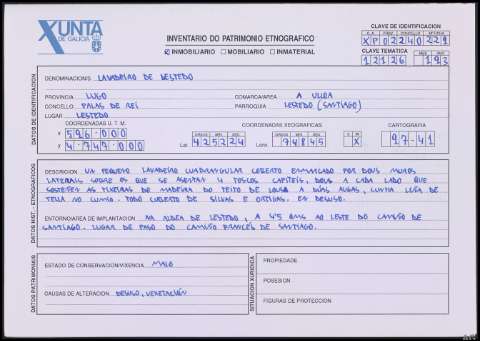 XUNTA
DE GALICIA
INVENTARIO DO PATRIMONIO ETNOGRAFICO
INMOBILIARIO MOBILIARIO INMATERIAL
CLAVE DE IDENTIFICACION
XP02240221
CLAVE TEMATICA
12126 193
DATOS DE IDENTIFICACION
DENOMINACIONS LAVADEIRO DE LESTEDO
PROVINCIA LUGO COMARCA/AREA A ULLOA
CONCELLO PALAS DE REI PARROQUIA LESTEDO (SANTIAGO)
LUGAR LESTEDO
COORDENADAS U.T.M. COORDENADAS XEOGRAFICAS CARTOGRAFIA
X 596.000 Lat 425224 Lon 74845 X 97-41
Y 4.747.000
DATOS HIST. - ETNOGRAFICOS
DESCRICION UN PEQUENO LAVADEIRO CUADRANGULAR CUBERTO ENMARCADO POR DOUS MUROS
LATERAIS SOBRE OS QUE SE ASENTAN 4 TOSCOS CAPITEIS, DOUS A CADA LADO QUE
SOSTEÑEN AS PIXEIRAS DE MADEIRA DO TEITO DE LOUSA A DÚAS AUGAS, CUNHA LIÑA DE
TELLA NO CUMIO. TODO CUBERTO DE SILVAS E ORTIGAS. EN DESUSO.
ENTORNO/AREA DE IMPLANTACION NA ALDEA DE LESTEDO, A 45 QMS AO LESTE DO CAMIÑO DE
SANTIAGO. LUGAR DE PASO DO CAMIÑO FRANCES DE SANTIAGO.
DATOS PATRIMONIAIS
ESTADO DE CONSERVACION/VIXENCIA MALO
CAUSAS DE ALTERACION DESUSO, VEXETACIÓN
SITUACION XURIDICA
PROPIEDADE
POSESION
FIGURAS DE PROTECCION